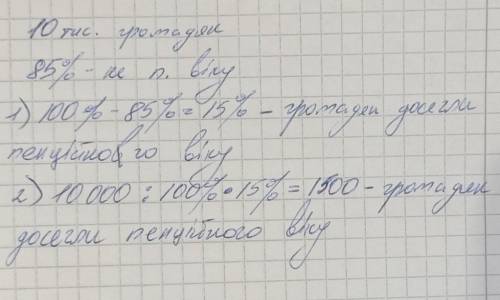 10 тис. громадян
85% - не п. віку
1) 100% - 85% = 15% - громадян досягли
пенційного віку
2) 10 000 : 100% • 15% = 1500 - громадян
досягли пенційного віку